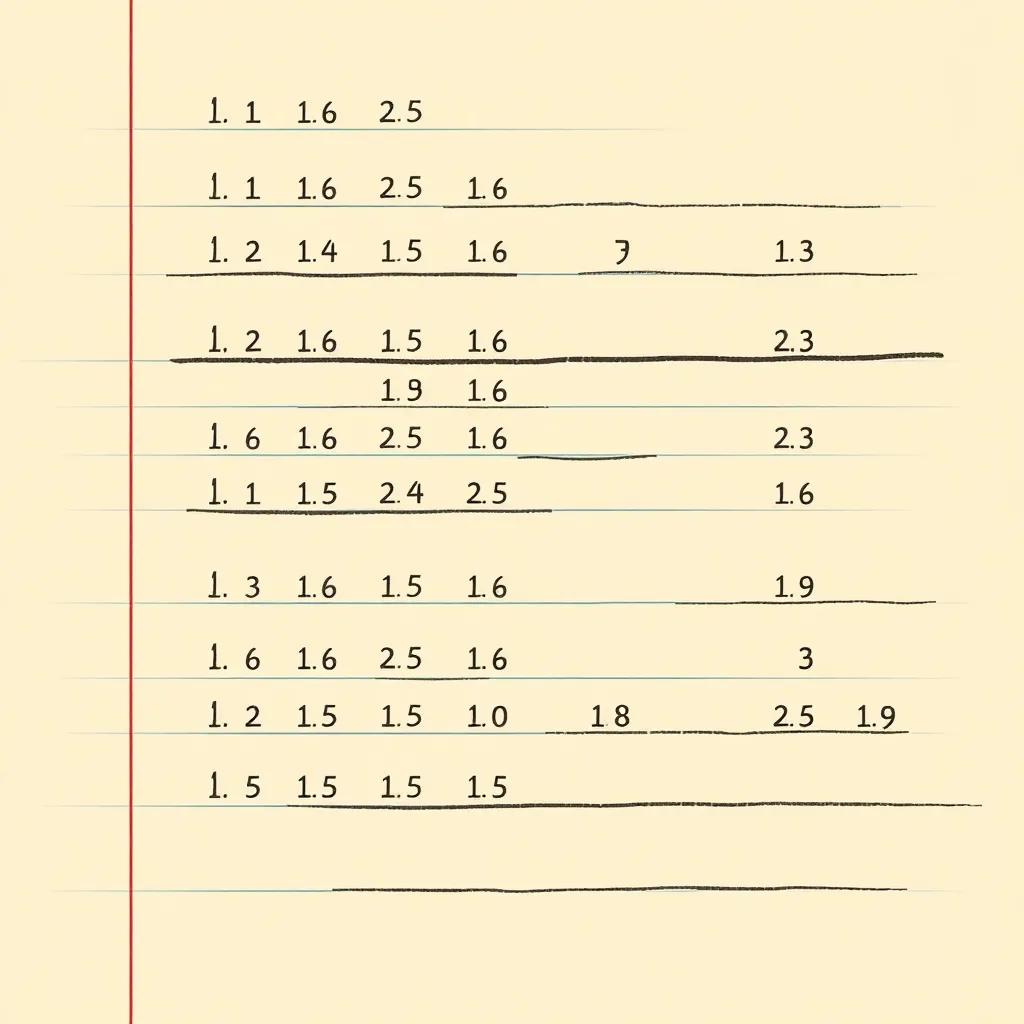 1. 1 1.6 2.5
1. 1 1.6 2.5 1.6
1. 2 1.4 1.5 1.6 1.3
1. 2 1.6 1.5 1.6 2.3
1.9 1.6
1. 6 1.6 2.5 1.6 2.3
1. 1 1.5 2.4 2.5 1.6
1. 3 1.6 1.5 1.6 1.9
1. 6 1.6 2.5 1.6 3
1. 2 1.5 1.5 1.0 1.8 2.5 1.9
1. 5 1.5 1.5 1.5